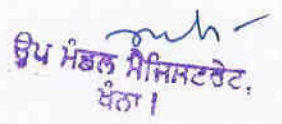 ਉਪ ਮੰਡਲ ਮੈਜਿਸਟਰੇਟ,
ਖੰਨਾ।